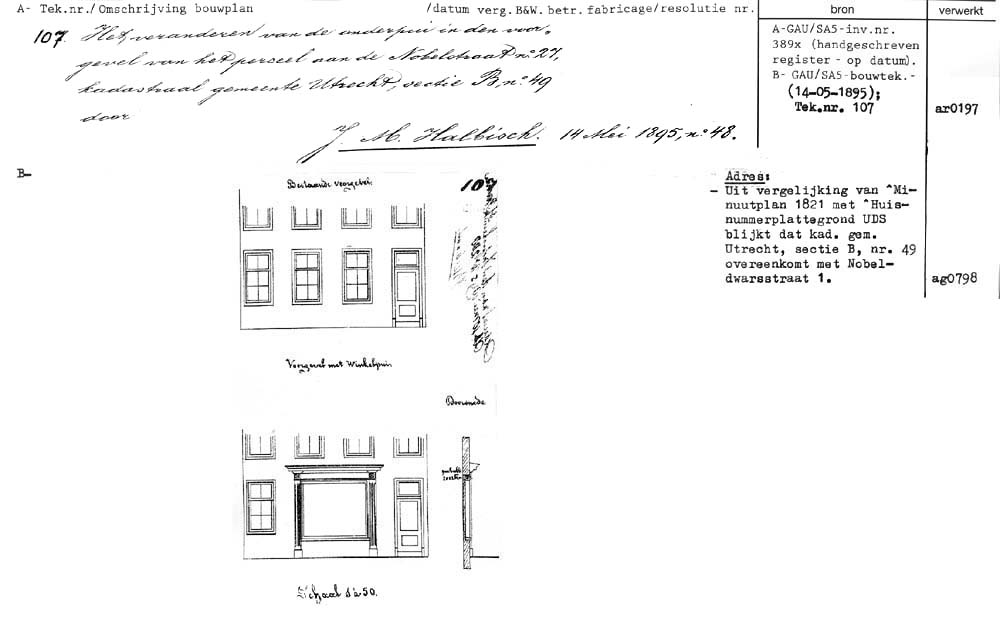 A- Tek.nr./Omschrijving bouwplan /datum verg.B&W.betr.fabricage/resolutie nr. bron verwerkt
107. Het veranderen van de onderpui in den voor-
gevel van het perceel aan de Nobelstraat no. 27,
kadastraal gemeente Utrecht, sectie B, no. 49
door
J. M. Halbisch. 14 Mei 1895, no. 48.
A-GAU/SA5-inv.nr.
389x (handgeschreven
register - op datum).
B- GAU/SA5-bouwtek.-
(14-05-1895);
Tek.nr. 107
ar0197
B-
Bestaande voorgevel.
107
Voorgevel met Winkelpui.
Doorsnede
Schaal 1 à 50.
Adres:
- Uit vergelijking van ^Mi-
nuutplan 1821 met ^Huis-
nummerplattegrond UDS
blijkt dat kad. gem.
Utrecht, sectie B, nr. 49
overeenkomt met Nobel-
dwarsstraat 1.
ag0798